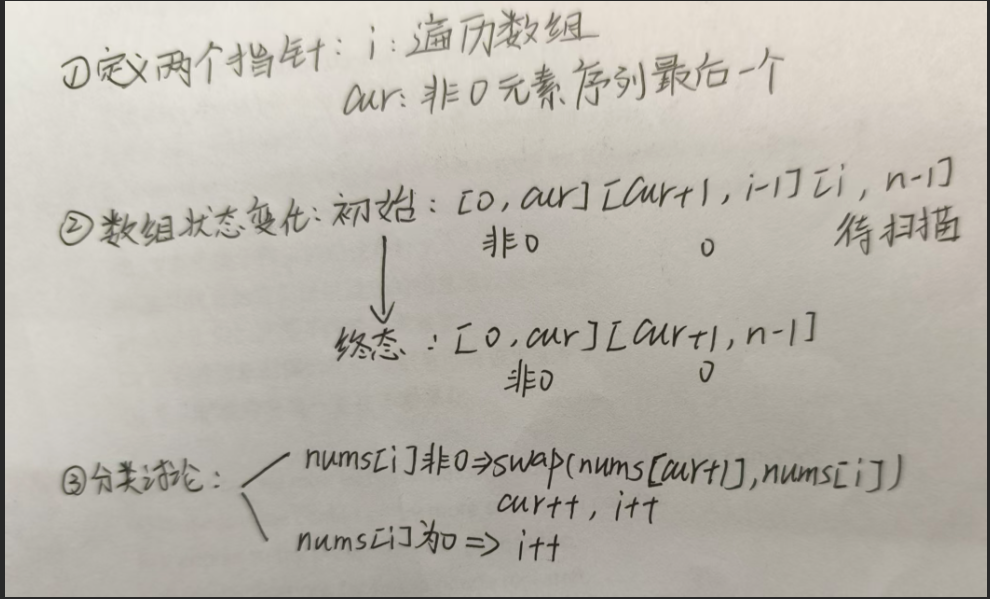 ①定义两个指针：i：遍历数组
cur：非0元素序列最后一个
②数组状态变化：初始：[0, cur] [cur+1, i-1] [i, n-1]
非0 0 待扫描
终态：[0, cur] [cur+1, n-1]
非0 0
③分类讨论：
nums[i]非0⇒swap(nums[cur+1], nums[i])
cur++, i++
nums[i]为0 => i++